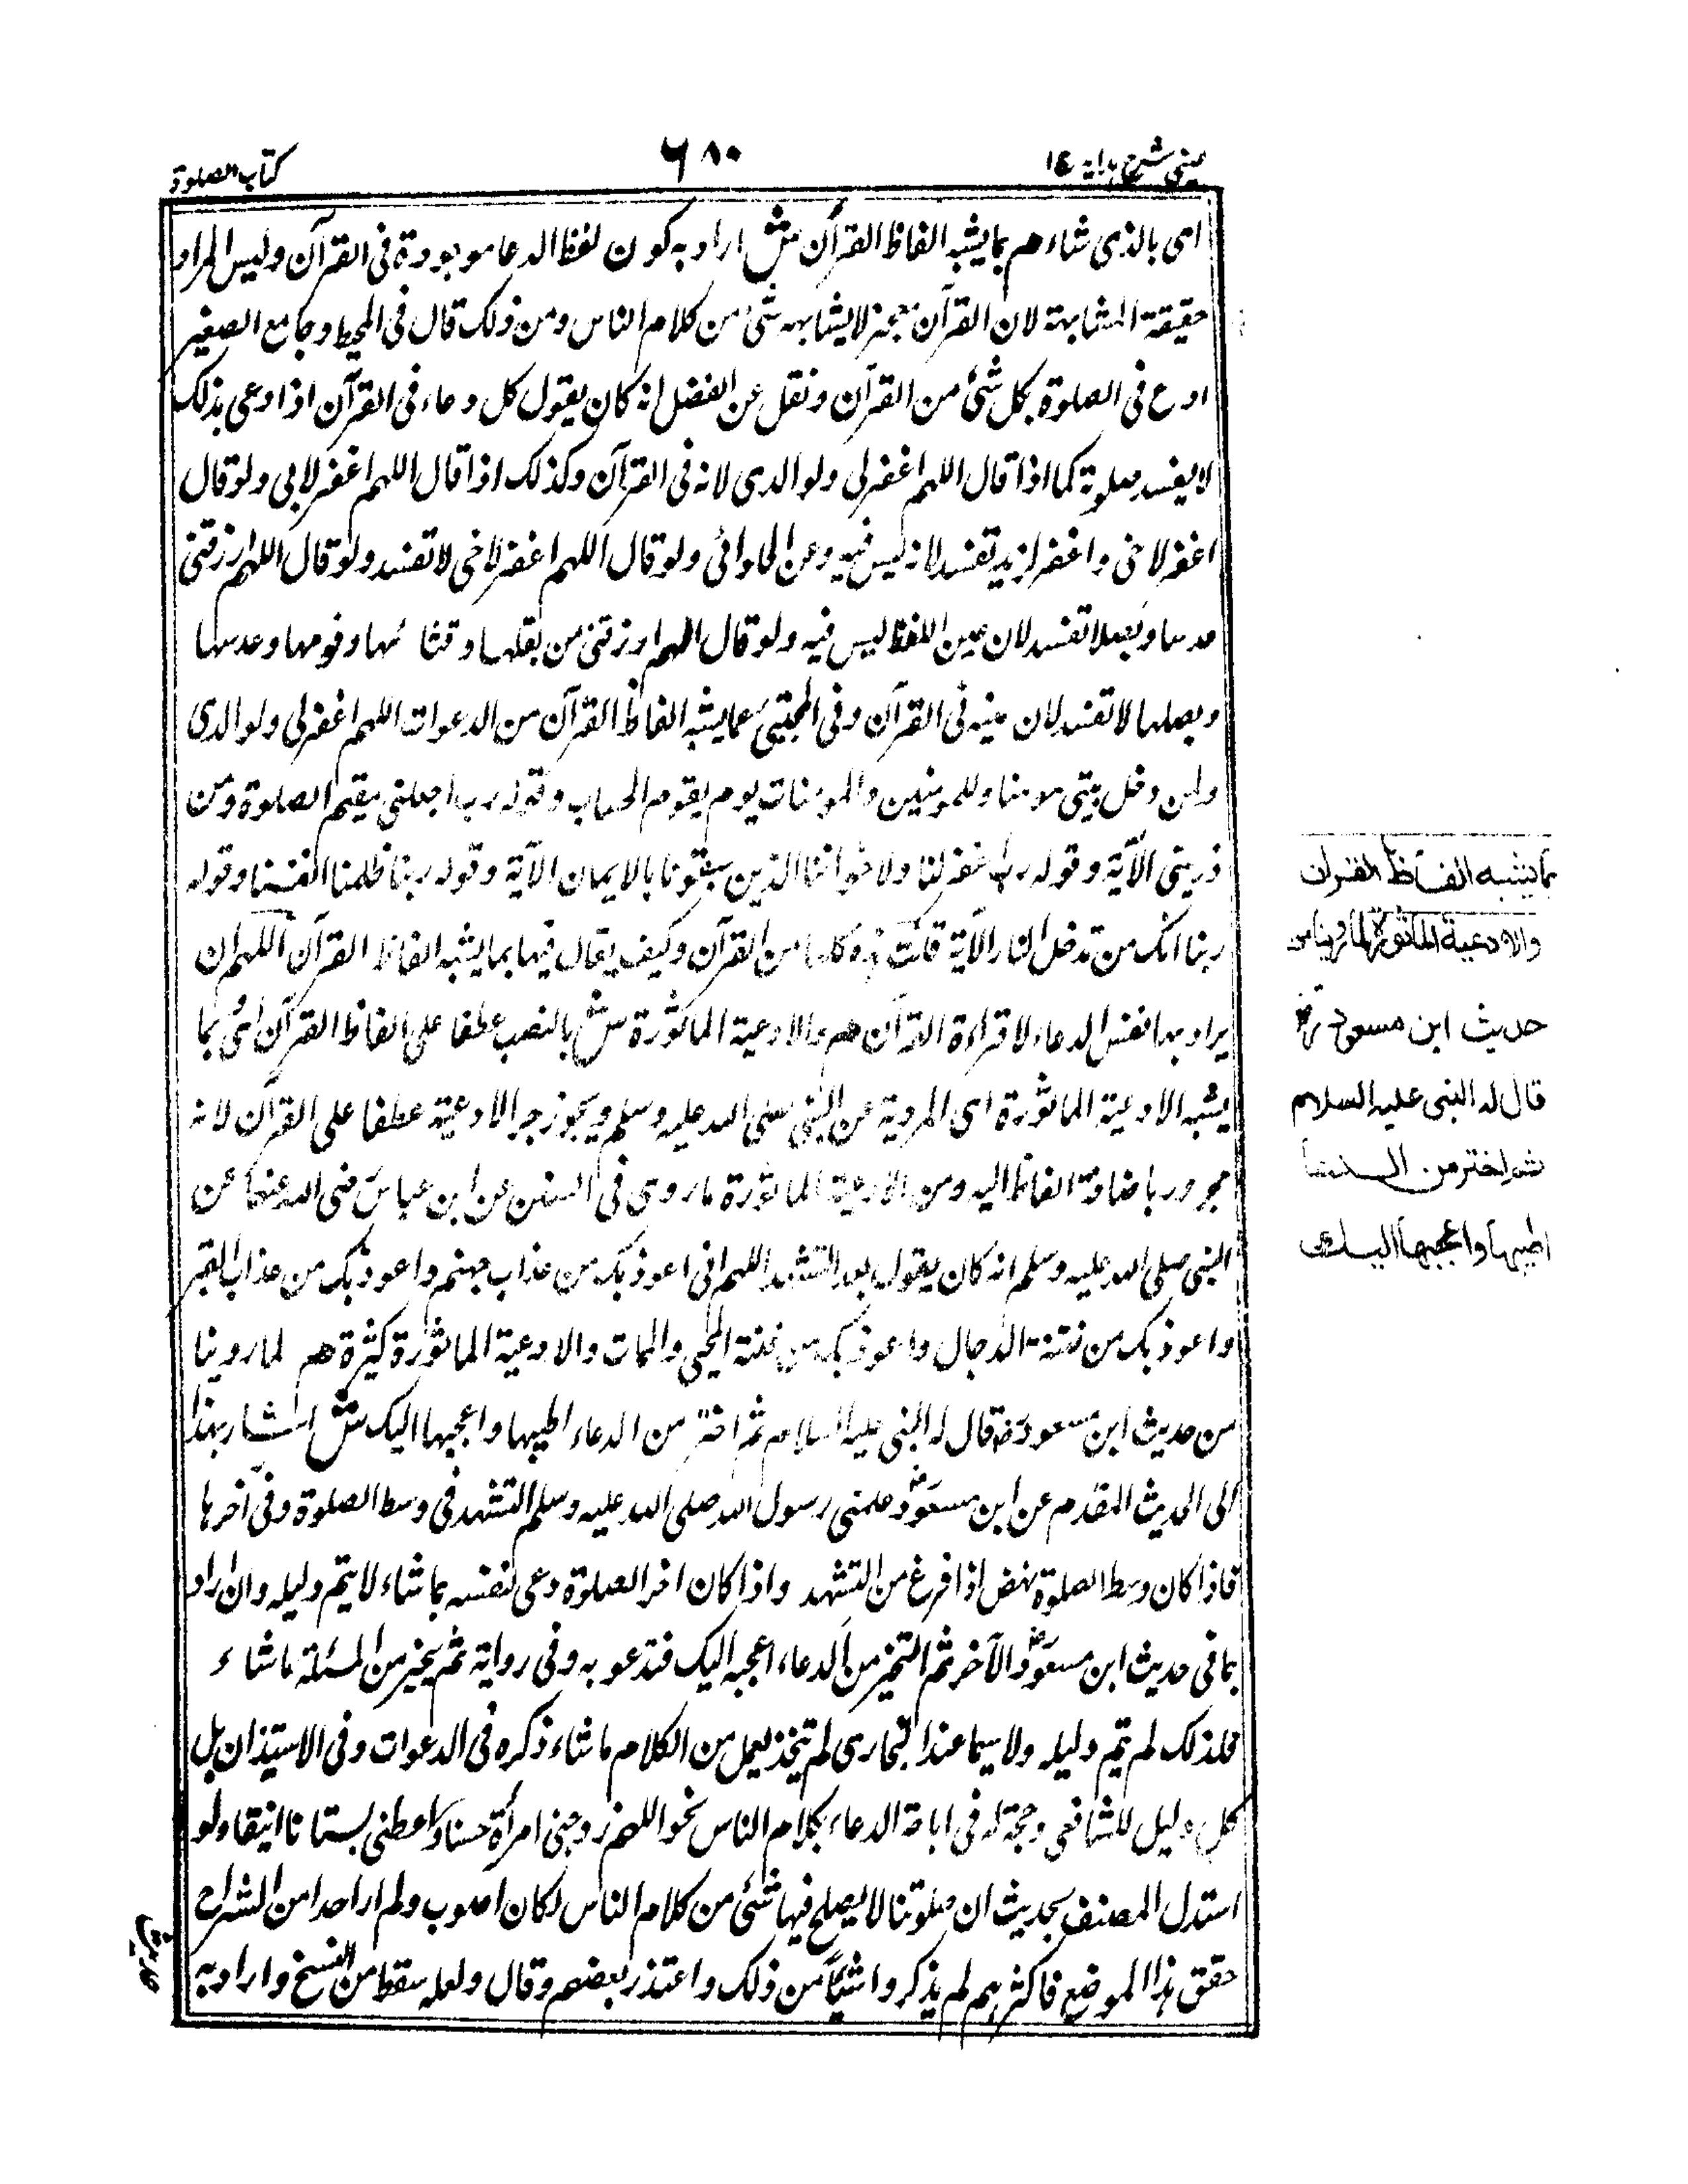 عینی شرح ہدایہ ج۱
۶۸۰
کتاب الصلوة
ای بالذی شاء هم بما یشبه الفاظ القرآن ش اراد به کون لفظ الدعا موجودة فی القرآن ولیس المراد
حقیقة المشابهة لان القرآن معجز لا یشابهه شئ من کلام الناس ومن ذلک قال فی المحیط وجامع الصغیر
ادع فی الصلوة بکل شئ من القرآن ونقل عن الفضل انه کان یقول کل دعاء فی القرآن اذا دعی بذلک
لا یفسد صلوته کما اذا قال اللهم اغفر لی ولوالدی لانه فی القرآن وکذلک اذا قال اللهم اغفر لابی ولو قال
اغفر لاخی واغفر لزید تفسد لانه لیس فیه وعن الحلوائی ولو قال اللهم اغفر لاخی لا تفسد ولو قال اللهم ارزقنی
عدسا وبصلا تفسد لان عین اللفظ لیس فیه ولو قال اللهم ارزقنی من بقلها وقثا ئها وفومها وعدسها
وبصلها لا تفسد لان عینه فی القرآن وفی المجتبی مما یشبه الفاظ القرآن من الدعوات اللهم اغفر لی ولوالدی
ولمن دخل بیتی مومنا وللمومنین والمومنات یوم یقوم الحساب وقوله رب اجعلنی مقیم الصلوة ومن
ذریتی الآیة وقوله ربنا اغفر لنا ولاخواننا الذین سبقونا بالایمان الآیة وقوله ربنا ظلمنا انفسنا وقوله
ربنا انک من تدخل النار الآیة قلت هذه کلها من القرآن وکیف یقال فیها بما یشبه الفاظ القرآن اللهم ان
یراد بها نفس الدعاء لا قراءة القرآن هم والادعیة الماثورة ش بالنصب عطفا علی الفاظ القرآن ای بما
یشبه الادعیة الماثورة ای المرویة عن النبی صلی الله علیه وسلم ویجوز جر الادعیة عطفا علی القرآن لانه
مجرور باضافة الفاظ الیه ومن الادعیة الماثورة ما روی فی السنن عن ابن عباس رضی الله عنهما عن
النبی صلی الله علیه وسلم انه کان یقول بعد التشهد اللهم انی اعوذ بک من عذاب جهنم واعوذ بک من عذاب القبر
واعوذ بک من فتنة الدجال واعوذ بک من فتنة المحیی والممات والادعیة الماثورة کثیرة هم لما روینا
من حدیث ابن مسعود رض قال له النبی علیه السلام ثم اختر من الدعاء اطیبها واعجبها الیک ش اشار بهذا
الی الحدیث المقدم عن ابن مسعود رض وعلمنی رسول الله صلی الله علیه وسلم التشهد فی وسط الصلوة وفی آخرها
فاذا کان وسط الصلوة نهض اذا فرغ من التشهد واذا کان اخر الصلوة دعی لنفسه بما شاء لا یتم دلیله وان اراد
بما فی حدیث ابن مسعود رض والآخر ثم التخیر من الدعاء اعجبه الیک فتدعو به وفی روایة ثم یتخیر من المسئلة ما شاء
فلذلک لم یتم دلیله ولا سیما عند البخاری لم یتخذ یعمل من الکلام ما شاء ذکره فی الدعوات وفی الاستیذان بل
کل دلیل للشافعی وحجة له فی اباحة الدعاء بکلام الناس نحو اللهم زوجنی امرأة حسناء واعطنی بستانا انیقا ولو
استدل المصنف بحدیث ان صلوتنا لا یصلح فیها شئ من کلام الناس لکان اصوب ولم ار احدا من الشراح
حقق هذا الموضع فاکثرهم لم یذکروا شیئا من ذلک واعتذر بعضهم وقال ولعله سقط من النسخ واراد به
بما یشبه الفاظ القران
والادعیة الماثورة لما روینا من
حدیث ابن مسعود رض
قال له النبی علیه السلام
ثم اختر من الدعا
اطیبها واعجبها الیک